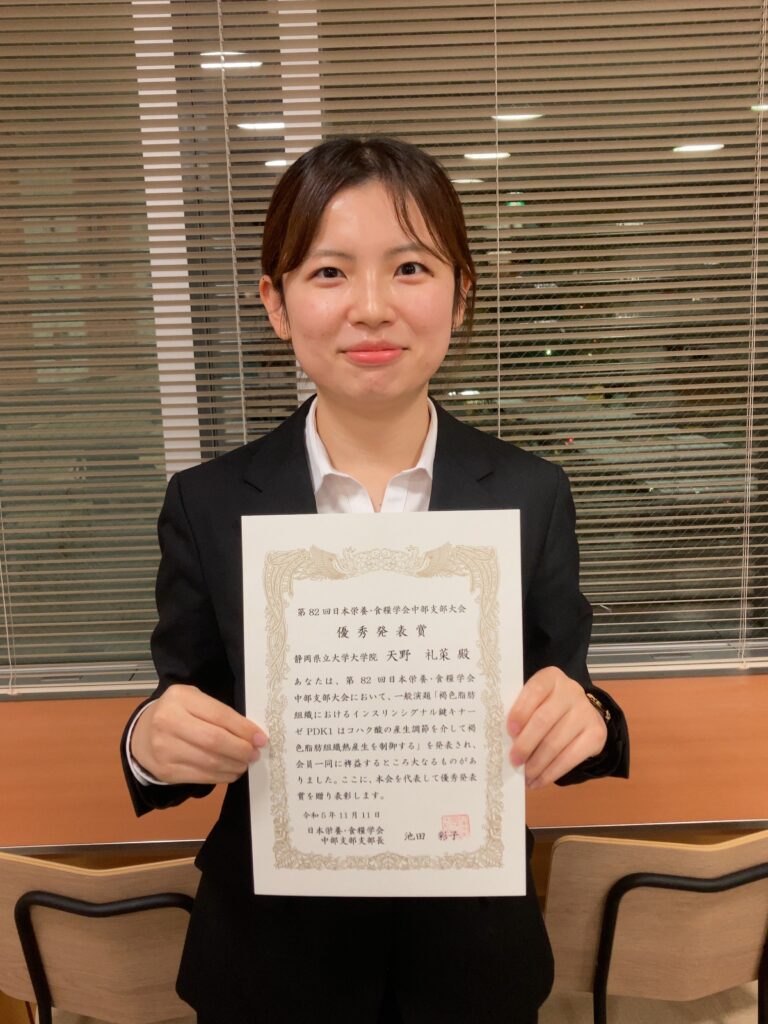 第82回日本栄養・食糧学会中部支部大会
優秀発表賞
静岡県立大学大学院 天野 礼菜 殿
あなたは、第82回日本栄養・食糧学会
中部支部大会において、一般演題「褐色脂肪
組織におけるインスリンシグナル鍵キナー
ゼPDK1はコハク酸の産生調節を介して褐
色脂肪組織熱産生を制御する」を発表され、
会員一同に裨益するところ大なるものがあ
りました。ここに、本会を代表して優秀発表
賞を贈り表彰します。
令和5年11月11日
日本栄養・食糧学会
中部支部支部長 池田 彩子